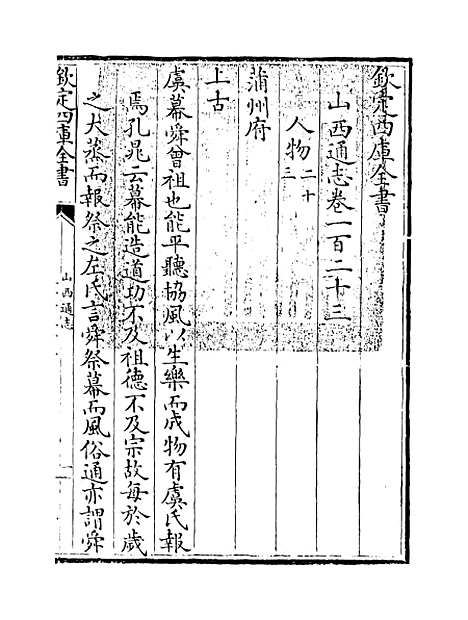 欽定四庫全書
山西通志卷一百二十三
人物二十三
蒲州府
上古
虞幕舜曾祖也能平聽協風以生樂而成物有虞氏報
焉孔晁云幕能造道功不及祖德不及宗故每於歲
之大蒸而報祭之左氏言舜祭幕而風俗通亦謂舜
欽定四庫全書
山西通志
一